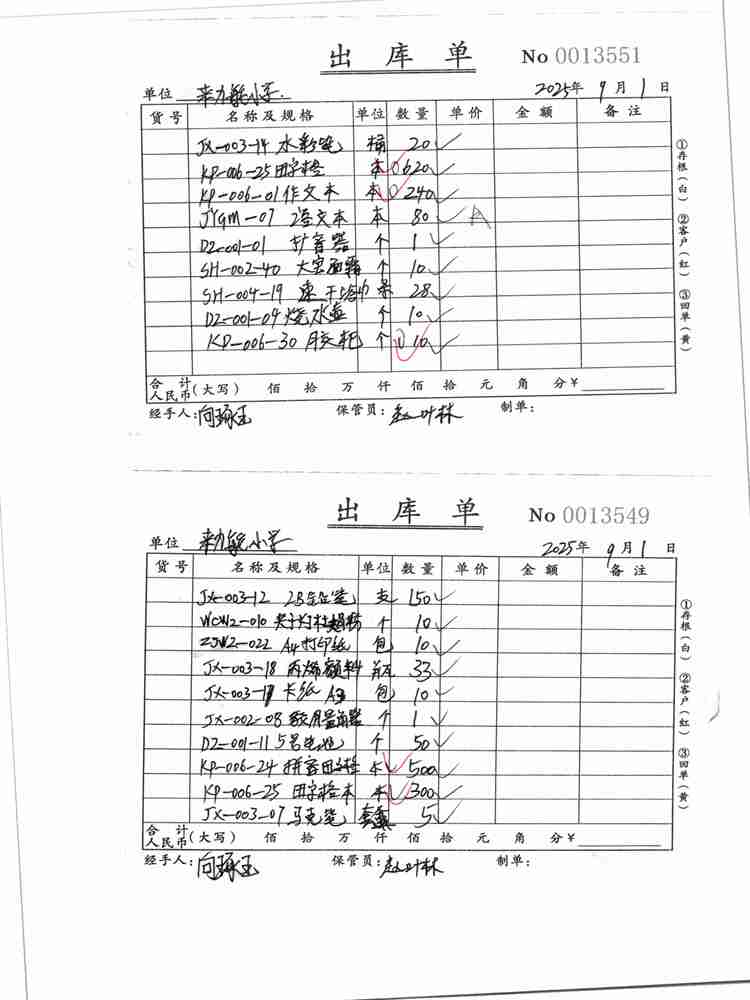 出 库 单 No 0013551
单位 小学 2025年 9月 1日
货号 名称及规格 单位 数量 单价 金额 备注
JX-003-14 水彩笔 桶 20
KP-006-25 田字格 本 620
KP-006-01 作文本 本 240
JYGM-07 语文本 本 80 A
DZ-001-01 扩音器 个 1
SH-002-40 大宝面霜 个 10
SH-004-19 速干浴巾 条 28
DZ-001-04 烧水壶 个 10
KP-006-30 个 10
合计人民币(大写) 佰 拾 万 仟 佰 拾 元 角 分 ¥
经手人: 向琼玉 保管员: 赵叶林 制单:
①存根(白) ②客户(红) ③回单(黄)
出 库 单 No 0013549
单位 小学 2025年 9月 1日
货号 名称及规格 单位 数量 单价 金额 备注
JX-003-12 2B铅笔 支 150
WCWZ-010 个 10
ZJWZ-022 A4打印纸 包 10
JX-003-18 丙烯颜料 瓶 33
JX-003-17 卡纸 A3 包 10
JX-002-08 教用量角器 个 1
DZ-001-11 5号电池 个 50
KP-006-24 拼音田字格 本 500
KP-006-25 田字格本 本 300
JX-003-07 马克笔 套 5
合计人民币(大写) 佰 拾 万 仟 佰 拾 元 角 分 ¥
经手人: 向琼玉 保管员: 赵叶林 制单:
①存根(白) ②客户(红) ③回单(黄)